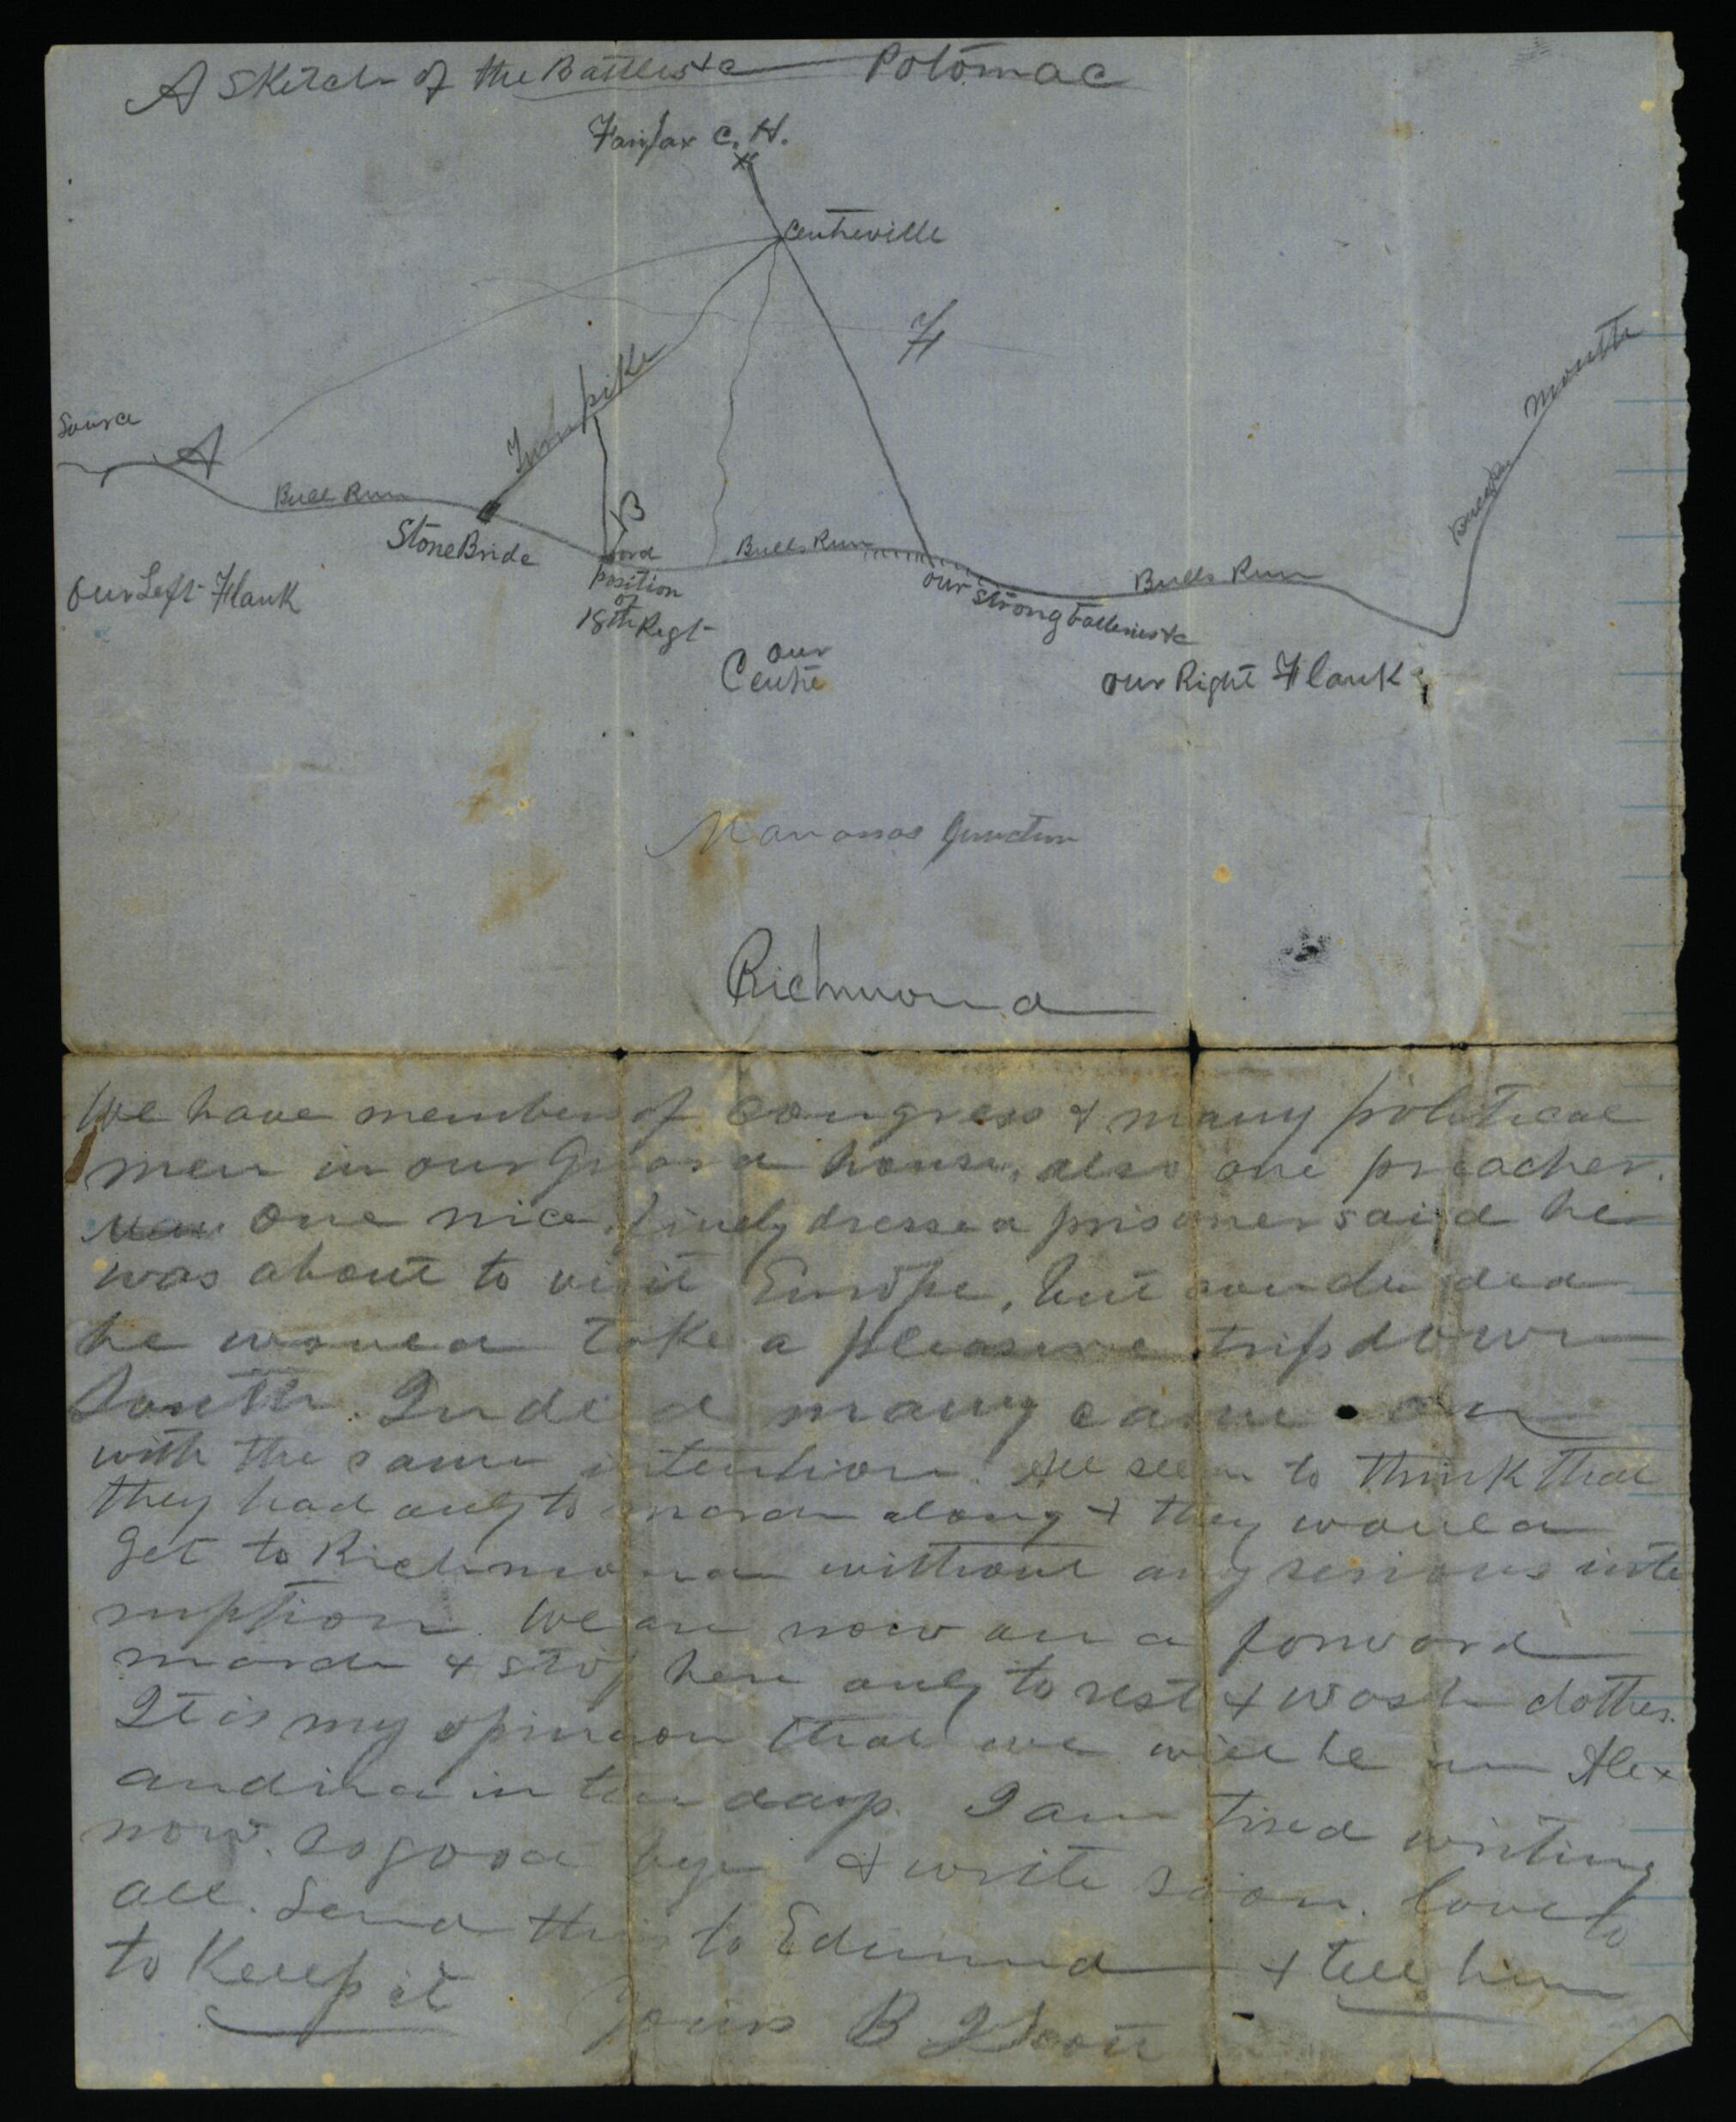 A Sketch of the Battles &c Potomac
Fairfax C. H.
Centreville
F
Mouth
Turnpike
Source
A
Bull Run
B
Stone Bride
ford
Bulls Run
Bulls Run
position
of
18th Regt
our strong batteries &c
Our Left Flank
our
Centre
our Right Flank
Manassas Junction
Richmond
We have members of Congress & many political
men in our Guard house, also one preacher.
One nice, finely dressed prisoner said he
was about to visit Europe, but concluded
he would take a pleasure trip down
South. Indeed many came on
with the same intention. All seem to think that
they had only to march along & they would
get to Richmond without any serious inte
ruption. We are now on a forward
march & stop here only to rest & wash clothes.
It is my opinion that we will be in Alex
andira in ten days. I am tired writing
now. So good bye & write soon. love to
all. Send this to Edmund & tell him
to Keep it
Yours B I Scott